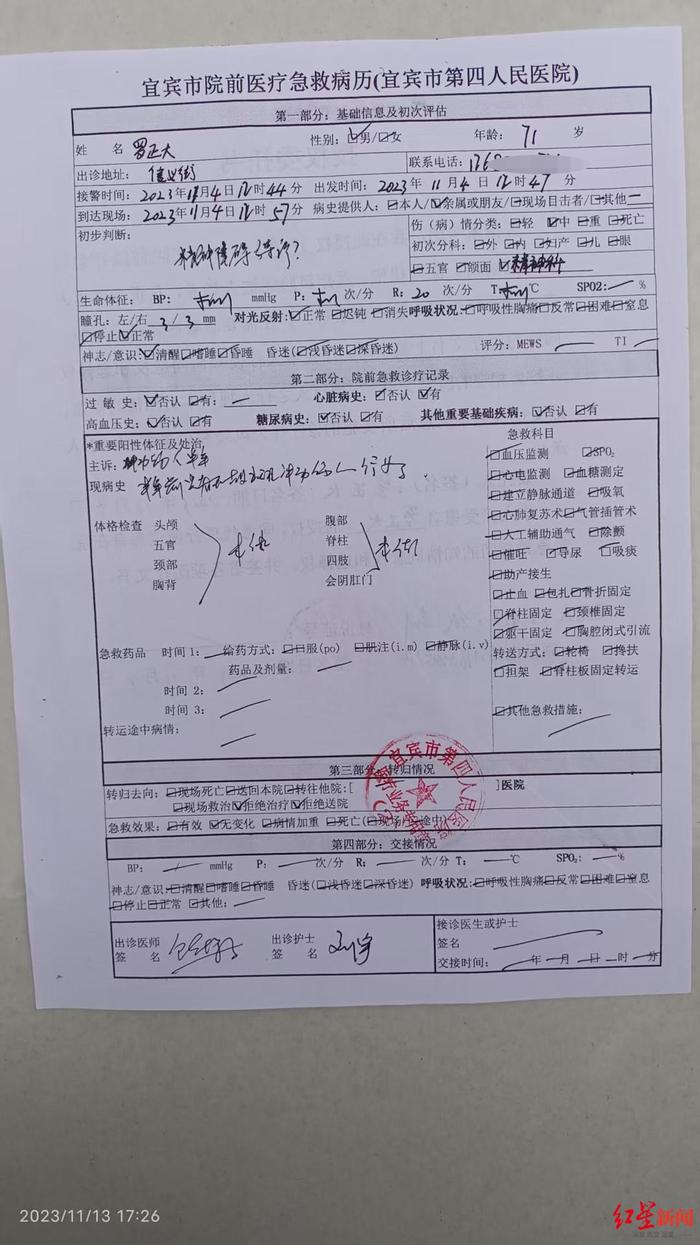 宜宾市院前医疗急救病历(宜宾市第四人民医院)
第一部分：基础信息及初次评估
姓 名 罗正大 性别：☑男/□女 年龄：71 岁
出诊地址： 街 联系电话：
接警时间：2023年11月4日12时44分 出发时间：2023年11月4日12时47分
到达现场：2023年11月4日12时57分 病史提供人：□本人/☑亲属或朋友/□现场目击者/□其他
初步判断： 伤（病）情分类：□轻 ☑中 □重 □死亡
精神障碍待诊？ 初次分科：□外 □内 □妇产 □儿 □眼
□五官 □颌面 ☑精神科
生命体征： BP： 未测 mmHg P：未测 次/分 R：20 次/分 T：未测℃ SPO2： %
瞳孔：左/右 3/3 mm 对光反射：☑正常 □迟钝 □消失 呼吸状况：□呼吸性胸痛□反常□困难□窒息
□停止☑正常
神志/意识：☑清醒□嗜睡□昏睡 昏迷(□浅昏迷□深昏迷) 评分：MEWS TI
第二部分：院前急救诊疗记录
过 敏 史：☑否认□有： 心脏病史：□否认 ☑有
高血压史：☑否认□有 糖尿病史：☑否认 □有 其他重要基础疾病：☑否认 □有
*重要阳性体征及处治 急救科目
主诉：冲动伤人 □血压监测 □SPO₂
现病史 冲动伤人行为 □心电监测 □血糖测定
□建立静脉通道 □吸氧
体格检查 头颅 腹部 □心肺复苏术□气管插管术
五官 未作 脊柱 未作 □人工辅助通气 □除颤
颈部 四肢 □催吐 □导尿 □吸痰
胸背 会阴肛门 □助产接生
□止血 □包扎□骨折固定
□脊柱固定 □颈椎固定
急救药品 时间1： 给药方式：□口服(po) □肌注(i.m) □静脉(i.v) □躯干固定 □胸腔闭式引流
药品及剂量： 转送方式：□轮椅 □搀扶
时间2： □担架 □脊柱板固定转运
时间3：
转运途中病情： □其他急救措施：
第三部分：转归情况
转归去向：□现场死亡□送回本院□转往他院:[ ]医院
□现场救治☑拒绝治疗☑拒绝送院
急救效果：□有效 ☑无变化 □病情加重 □死亡(□现场/□途中)
宜宾市第四人民医院
第四部分：交接情况
BP： mmHg P： 次/分 R： 次/分 T： ℃ SPO₂： %
神志/意识□清醒□嗜睡□昏睡 昏迷(□浅昏迷□深昏迷) 呼吸状况:□呼吸性胸痛□反常□困难□窒息
□停止□正常 □其他：
出诊医师 出诊护士 接诊医生或护士
签 名 签 名 签名
交接时间： 年 月 日 时 分
2023/11/13 17:26
红星新闻